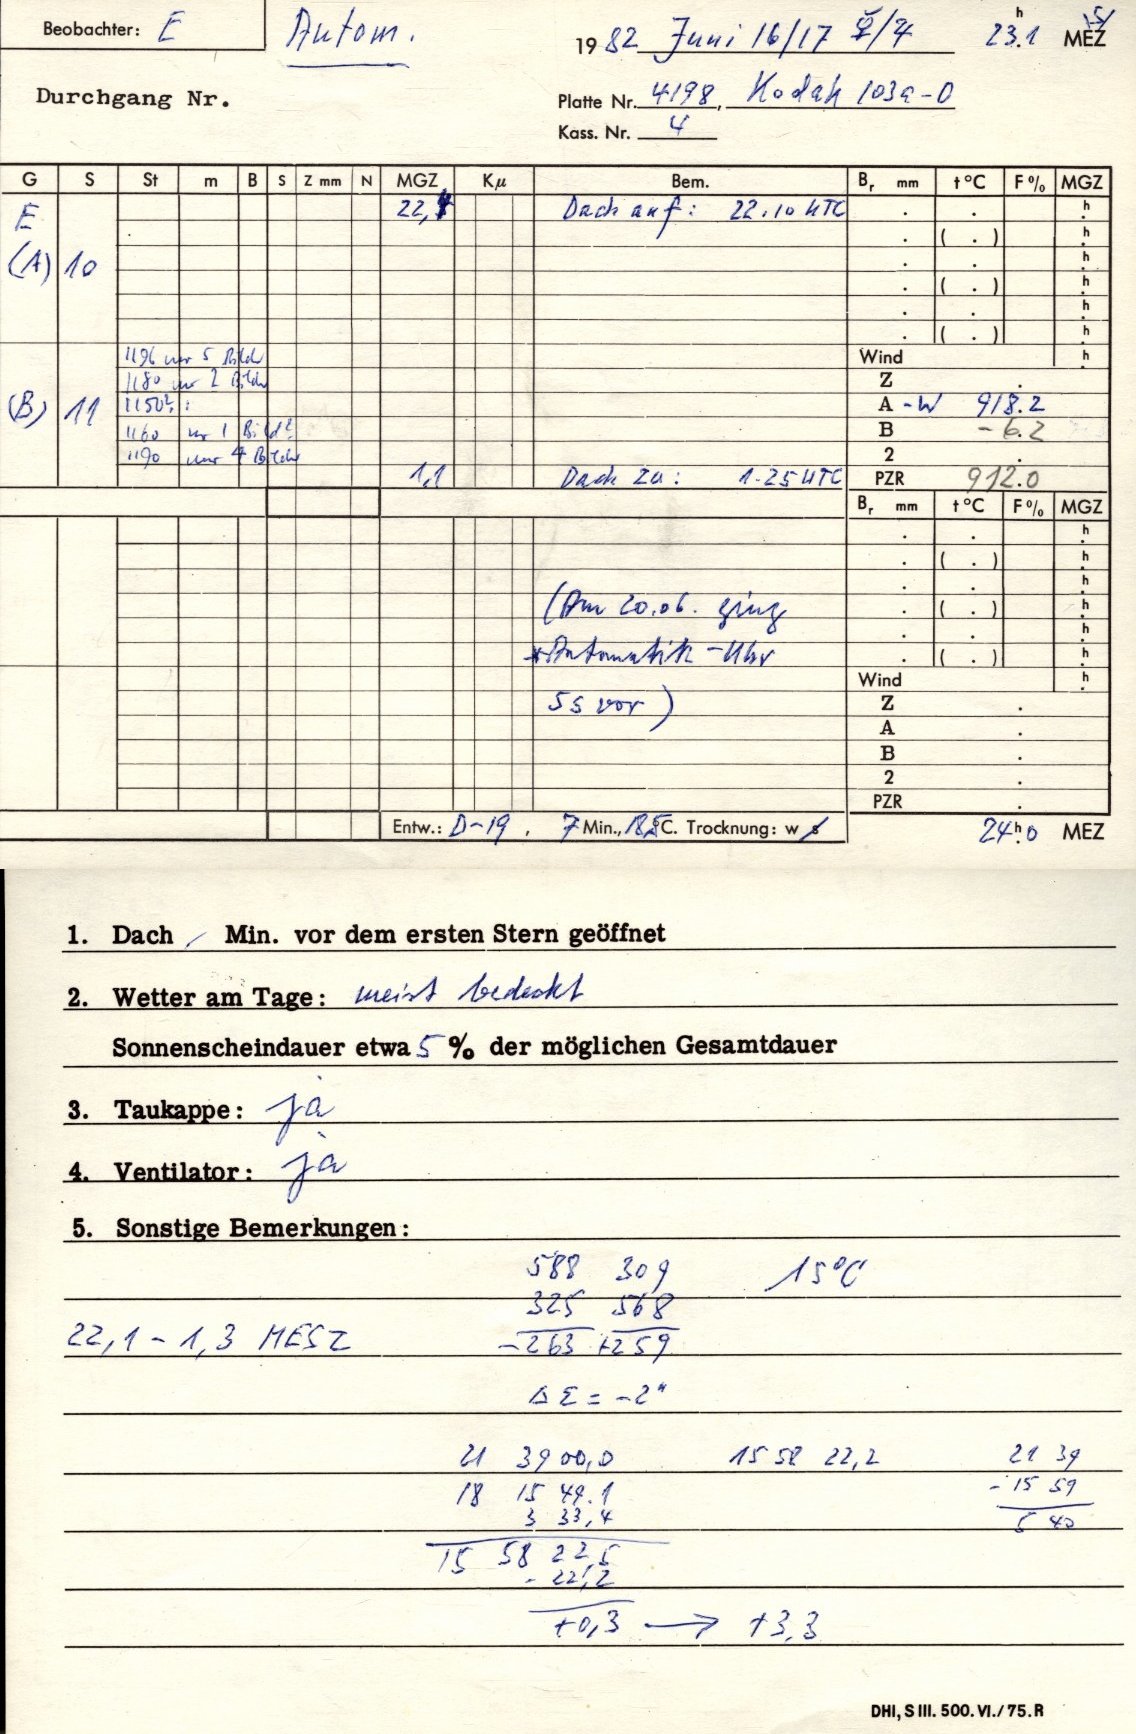 Beobachter: E
Autom.
1982 Juni 16/17 ☿/♃ 23.1 h MESZ
Durchgang Nr.
Platte Nr. 4198, Kodak 103a-O
Kass. Nr. 4
G S St m B S Z mm N MGZ Kμ Bem. Br mm t°C F% MGZ
E 22, Dach auf: 22.10 UTC . . h
. ( . ) h
(A) 10 . . h
. ( . ) h
. . h
. ( . ) h
1196 nur 5 Bilder Wind h
1180 nur 2 Bilder Z .
(B) 11 1150?: A -W 918.2
1160 nur 1 Bild? B -6.2
1190 nur 4 Bilder 2 .
1,1 Dach zu: 1.25 UTC PZR 912.0
Br mm t°C F% MGZ
. . h
. ( . ) h
. . h
(Am 20.06. ging . ( . ) h
. . h
*Automatik-Uhr . ( . ) h
Wind h
5s vor) Z .
A .
B .
2 .
PZR .
Entw.: D-19, 7 Min., 18.5°C. Trocknung: w s
24h.0 MEZ
1. Dach / Min. vor dem ersten Stern geöffnet
2. Wetter am Tage: meist bedeckt
Sonnenscheindauer etwa 5 % der möglichen Gesamtdauer
3. Taukappe: ja
4. Ventilator: ja
5. Sonstige Bemerkungen:
588 309 15°C
325 568
22,1 - 1,3 MESZ -263 +259
Δ Σ = -2"
21 39 00,0 15 58 22,2 21 39
18 15 49.1 - 15 59
3 33,4 5 40
15 58 22,5
- 22,2
+0,3 → +3,3
DHI, S III. 500. VI./75. R